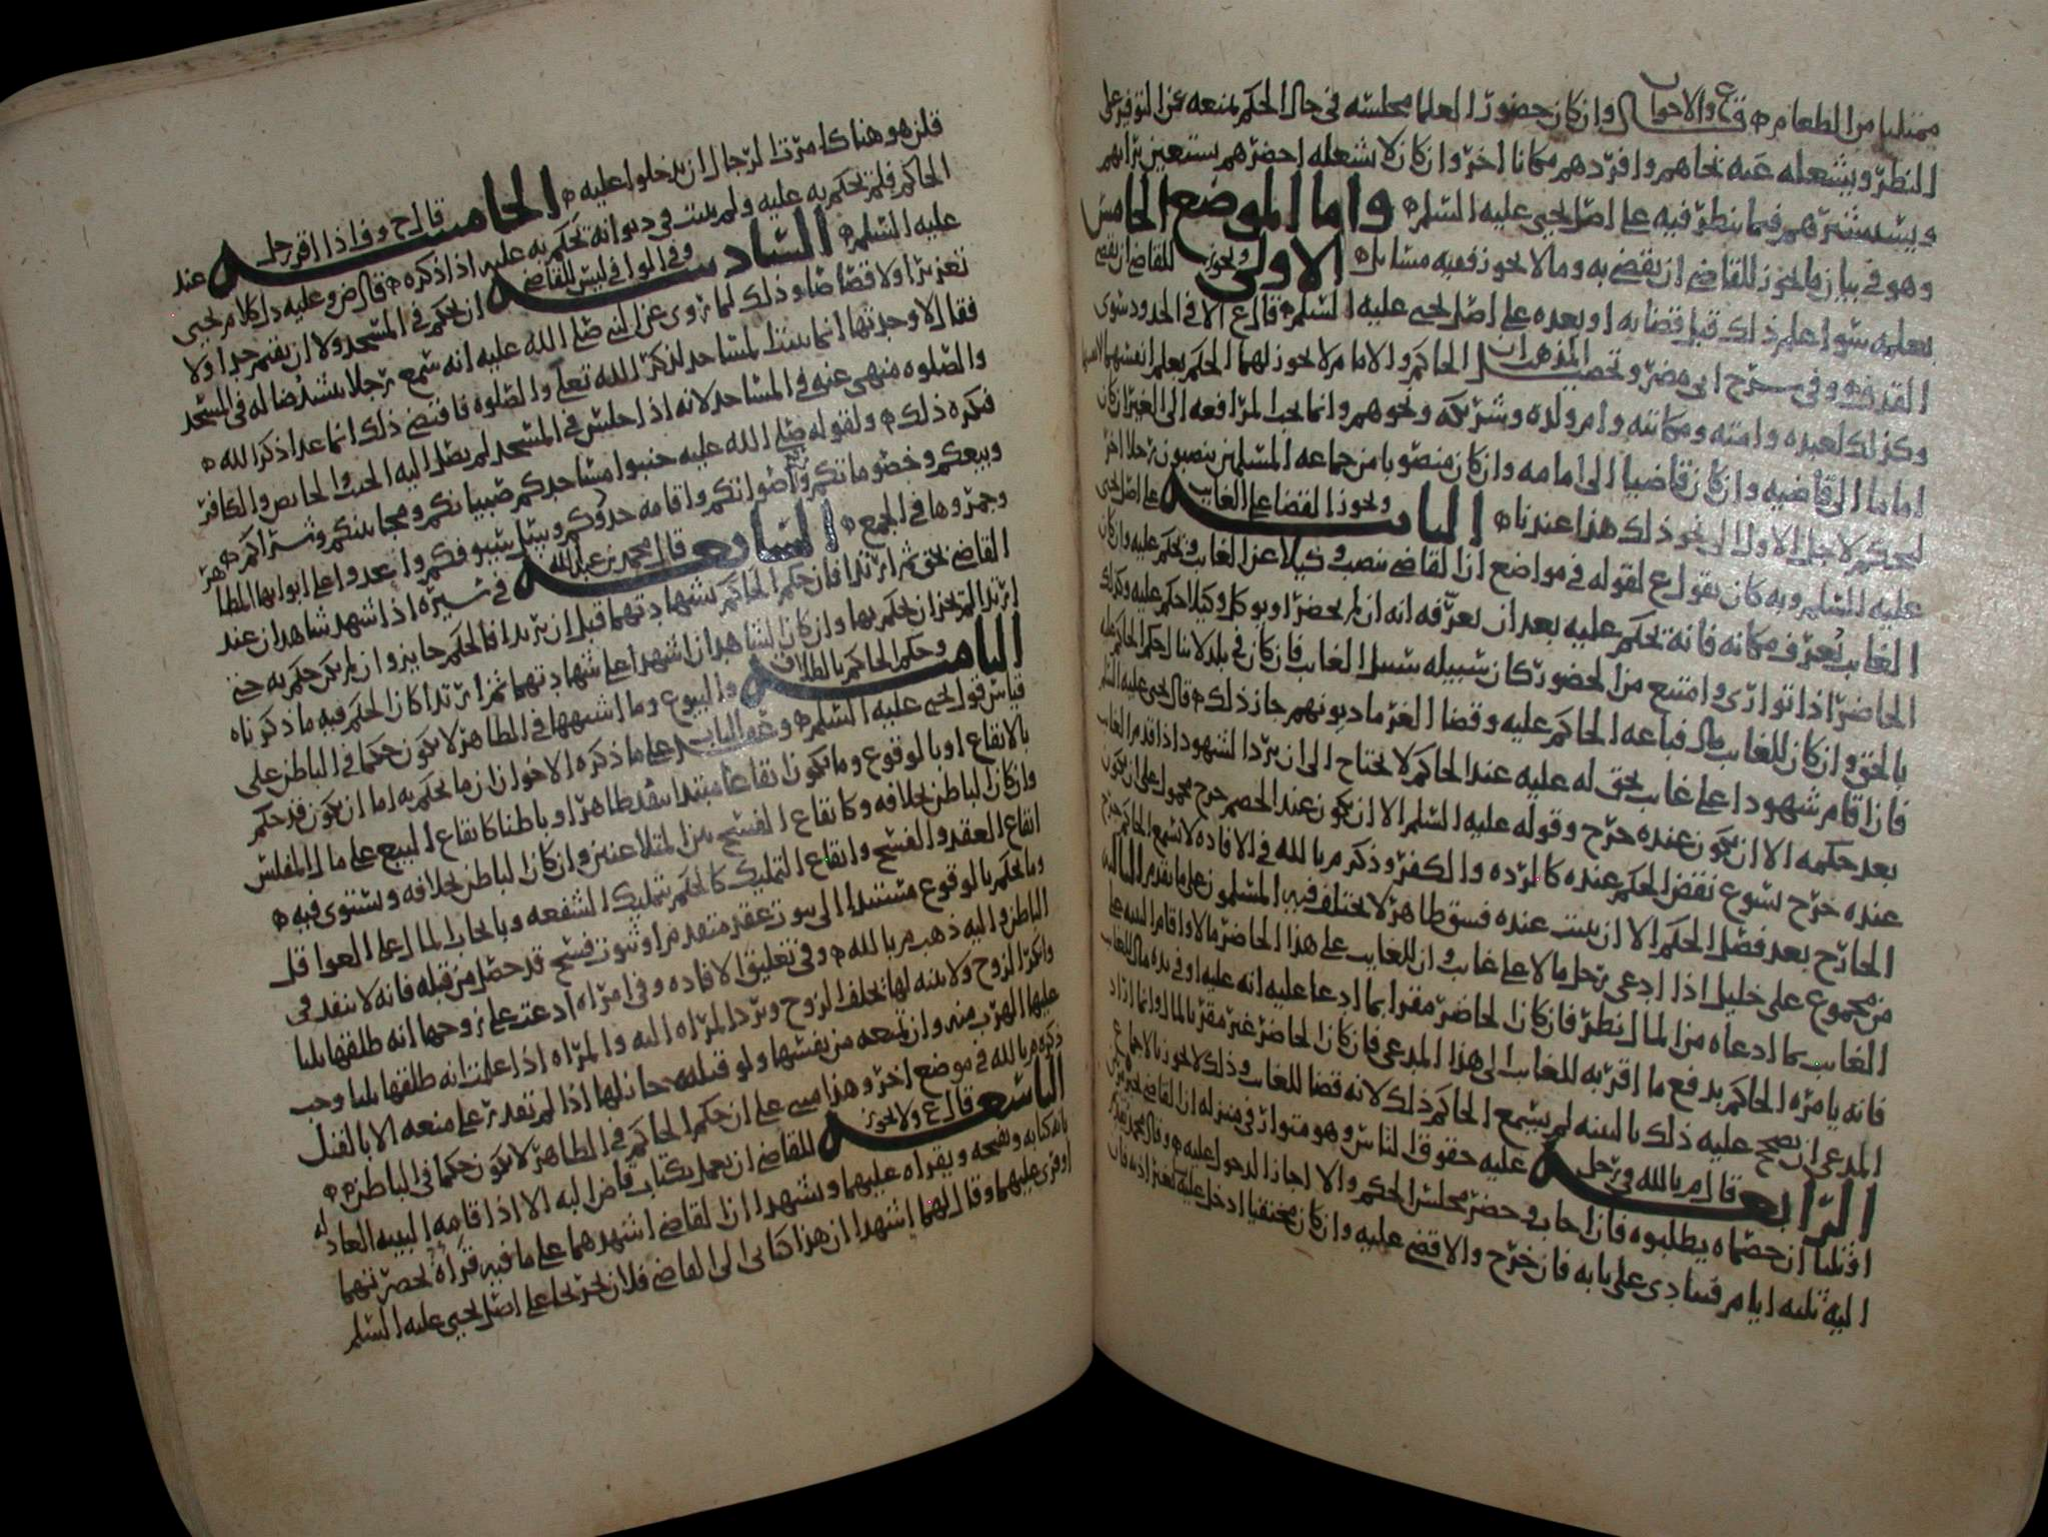 ممتليا من الطعام فرع والاحوال وان كان حضور العلما مجلسه في حال الحكم يمنعه عن التوفر على
النظر ويشغله عنه نحاهم وافردهم مكانا اخر وان كان لا يشغله احضرهم يستعين برايهم
ويستشيرهم فيما ينظر فيه على اصل يحيى عليه السلم واما الموضع الخامس
وهو في بيان ما يجوز للقاضي ان يقضي به وما لا يجوز ففيه مسايل الاولى ويجوز للقاضي ان يقضي
بعلمه سوا علم ذلك قبل قضايه او بعده على اصل يحيى عليه السلم قال ع الا في الحدود سوى
القذف وفي شرح ابي مضر وتحصيل المذهب ان الحاكم والامام لا يجوز لهما الحكم بعلم انفسهما
وكذلك لعبده وامته ومكاتبه وام ولده وشريكه ونحوهم وانما يجب المرافعه الى الغير ان كان
اماما الى قاضيه وان كان قاضيا الى امامه وان كان منصوبا من جماعه المسلمين ينصبون رجلا اخر
ليحكم لاجل الاول الى نحو ذلك هذا عندنا الثانيه ويجوز القضا على الغايب على اصل يحيى
عليه السلم وبه كان يقول ع لقوله في مواضع ان القاضي ينصب وكيلا عن الغايب ويحكم عليه وان كان
الغايب يعرف مكانه فانه يحكم عليه بعد ان يعرفه انه ان لم يحضر او يوكل وكيلا حكم عليه وكذلك
الحاضر اذا توارى وامتنع من الحضور كان سبيله سبيل الغايب فان كان في بلد لاينا لحكم الحاكم عليه
بالحق وان كان للغايب مال فباعه الحاكم عليه وقضا الغرما ديونهم جاز ذلك قال يحيى عليه السلم
فان اقام شهودا على غايب بحق له عليه عند الحاكم لا يحتاج الى ان يرد الشهود اذا قدم الغايب
بعد حكمه الا ان يكون عنده جرح وقوله عليه السلم الا ان يكون عند الخصم جرح محمول على ان يكون
عنده جرح يسوع نقض الحكم عنده كالرده والكفر وذكر م بالله في الافاده لا يسمع الحاكم جرح
الجارح بعد فصل الحكم الا ان يثبت عنده فسق ظاهر لا يختلف فيه المسلمون على ما تقدم الثالثه
من مجموع على خليل اذا ادعى رجل مالا على غايب وان للغايب على هذا الحاضر مالا واقام البينه على
الغايب بما ادعاه من المال نظر فان كان الحاضر مقرا بما ادعا عليه انه عليه او في يده مال للغايب
فانه يامره الحاكم بدفع ما اقر به للغايب الى هذا المدعي فان كان الحاضر غير مقر بالمال وانما اراد
المدعي ان يصحح عليه ذلك بالبينه لم يسمع الحاكم ذلك لانه قضا للغايب وذلك لا يجوز بالاجماع
الرابعه قال م بالله في رجل عليه حقوق الناس وهو متوار في منزله ان القاضي
او ثلثا ان خصماه يطلبوه فان اجاب وحضر مجلس الحكم والا اجاز الدخول عليه وقال محمد
اليه ثلثه ايام فينادي على بابه فان خرج والا قضي عليه وان كان مختفيا ادخل عليه
فلن هو هناك امرت الرجال ان يدخلوا عليه الخامسه قال ح وفاذا اقر رجل عند
الحاكم فلم يحكم به عليه ولم يثبت في ديوانه يحكم به عليه اذا ذكره قال ض وعليه دل كلام يحيى
عليه السلم السادسه وفي الوافي ليس للقاضي ان يحكم في المسجد ولا ان يقيم حدا ولا
تعزيرا ولا قصاصا وذلك لما روي عن النبي صلى الله عليه انه سمع رجلا ينشد ضاله في المسجد
فقال لا وجدتها انما بنيت المساجد لذكر الله تعلى والصلوه فاقتضى ذلك انما عدا ذكر الله
والصلوه منهي عنه في المساجد لانه اذا جلس في المسجد لم يصل اليه الجنب والحايض والكافر
فكره ذلك ولقوله صلى الله عليه جنبوا مساجدكم صبيانكم ومجانينكم وشراكم
وبيعكم وخصوماتكم واصواتكم واقامه حدودكم وسل سيوفكم واتخذوا على ابوابها المطاهر
وجمروها في الجمع السابعه قال محمد بن عبدالله في سيره اذا شهد شاهدان عند
القاضي بحق ثم ارتدا فان حكم الحاكم بشهادتهما قبل ان يرتدا فالحكم جايز وان لم يكن حكم به حتى
ارتدا لم يجز ان يحكم بها وان كان الشاهدان اشهدا على شهادتهما ثم ارتدا كان الحكم فيه ما ذكرناه
الثامنه وحكم الحاكم بالطلاق والبيوع وما اشبهها في الظاهر لا يكون حكما في الباطن على
قياس قول يحيى عليه السلم وعقد الباب على ما ذكره الاخوان ان ما يحكم به اما ان يكون قد حكم
بالايقاع او بالوقوع وما يكون ايقاعا مبتدا ينفذ ظاهرا وباطنا كايقاع البيع على مال المفلس
وان كان الباطن بخلافه وكايقاع الفسخ بين المتلاعنين وان كان الباطن بخلافه ويستوى فيه
ايقاع العقد والفسخ وايقاع التمليك كالحكم بتمليك الشفعه وبايجاب المال على العواقل
وما يحكم بالوقوع مستندا الى ثبوت عقد متقدم او ثبوت فسخ قد حصل من قبله فانه لا ينفد في
الباطن واليه ذهب م بالله وفي تعليق الافاده وفي امراه ادعت على زوجها انه طلقها ثلثا
وانكر الزوج ولا بينه لها يحلف الزوج وترد المراه اليه والمراه اذا علمت انه طلقها ثلثا وجب
عليها الهرب منه وان تمنعه من نفسها ولو قتلته جاز لها اذا لم تقدر على منعه الا بالقتل
ذكره م بالله في موضع اخر وهذا مبني على ان حكم الحاكم في الظاهر لا يكون حكما في الباطن
التاسعه قال ع ولا يجوز للقاضي ان يعمل بكتاب قاض اليه الا اذا قامه البينه العادله
بانه كتابه ويفتحه ويقراه عليهما ويشهدا ان القاضي اشهدهما على ما فيه قراه بحضرتهما
او قري عليهما وقال لهما اشهدا ان هذا كتابي الى القاضي فلان تخريجا على اصل يحيى عليه السلم